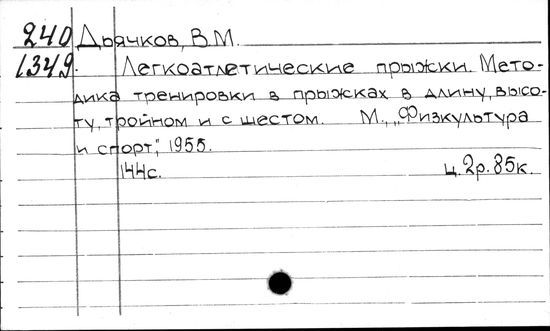 240 Дьячков, В.М.
1349. Легкоатлетические прыжки. Мето-
дика тренировки в прыжках в длину, высо-
ту, тройном и с шестом. М., „Физкультура
и спорт“, 1955.
144с. ц. 2р. 85к.